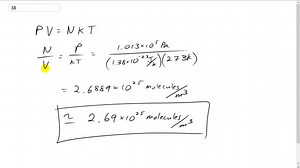 38
PV = NKT
N/V = P/KT = 1.013×10⁵ Pa / (1.38×10⁻²³ J/K)(273K)
= 2.6889×10²⁵ molecules/m³
≃ 2.69×10²⁵ molecules/m³